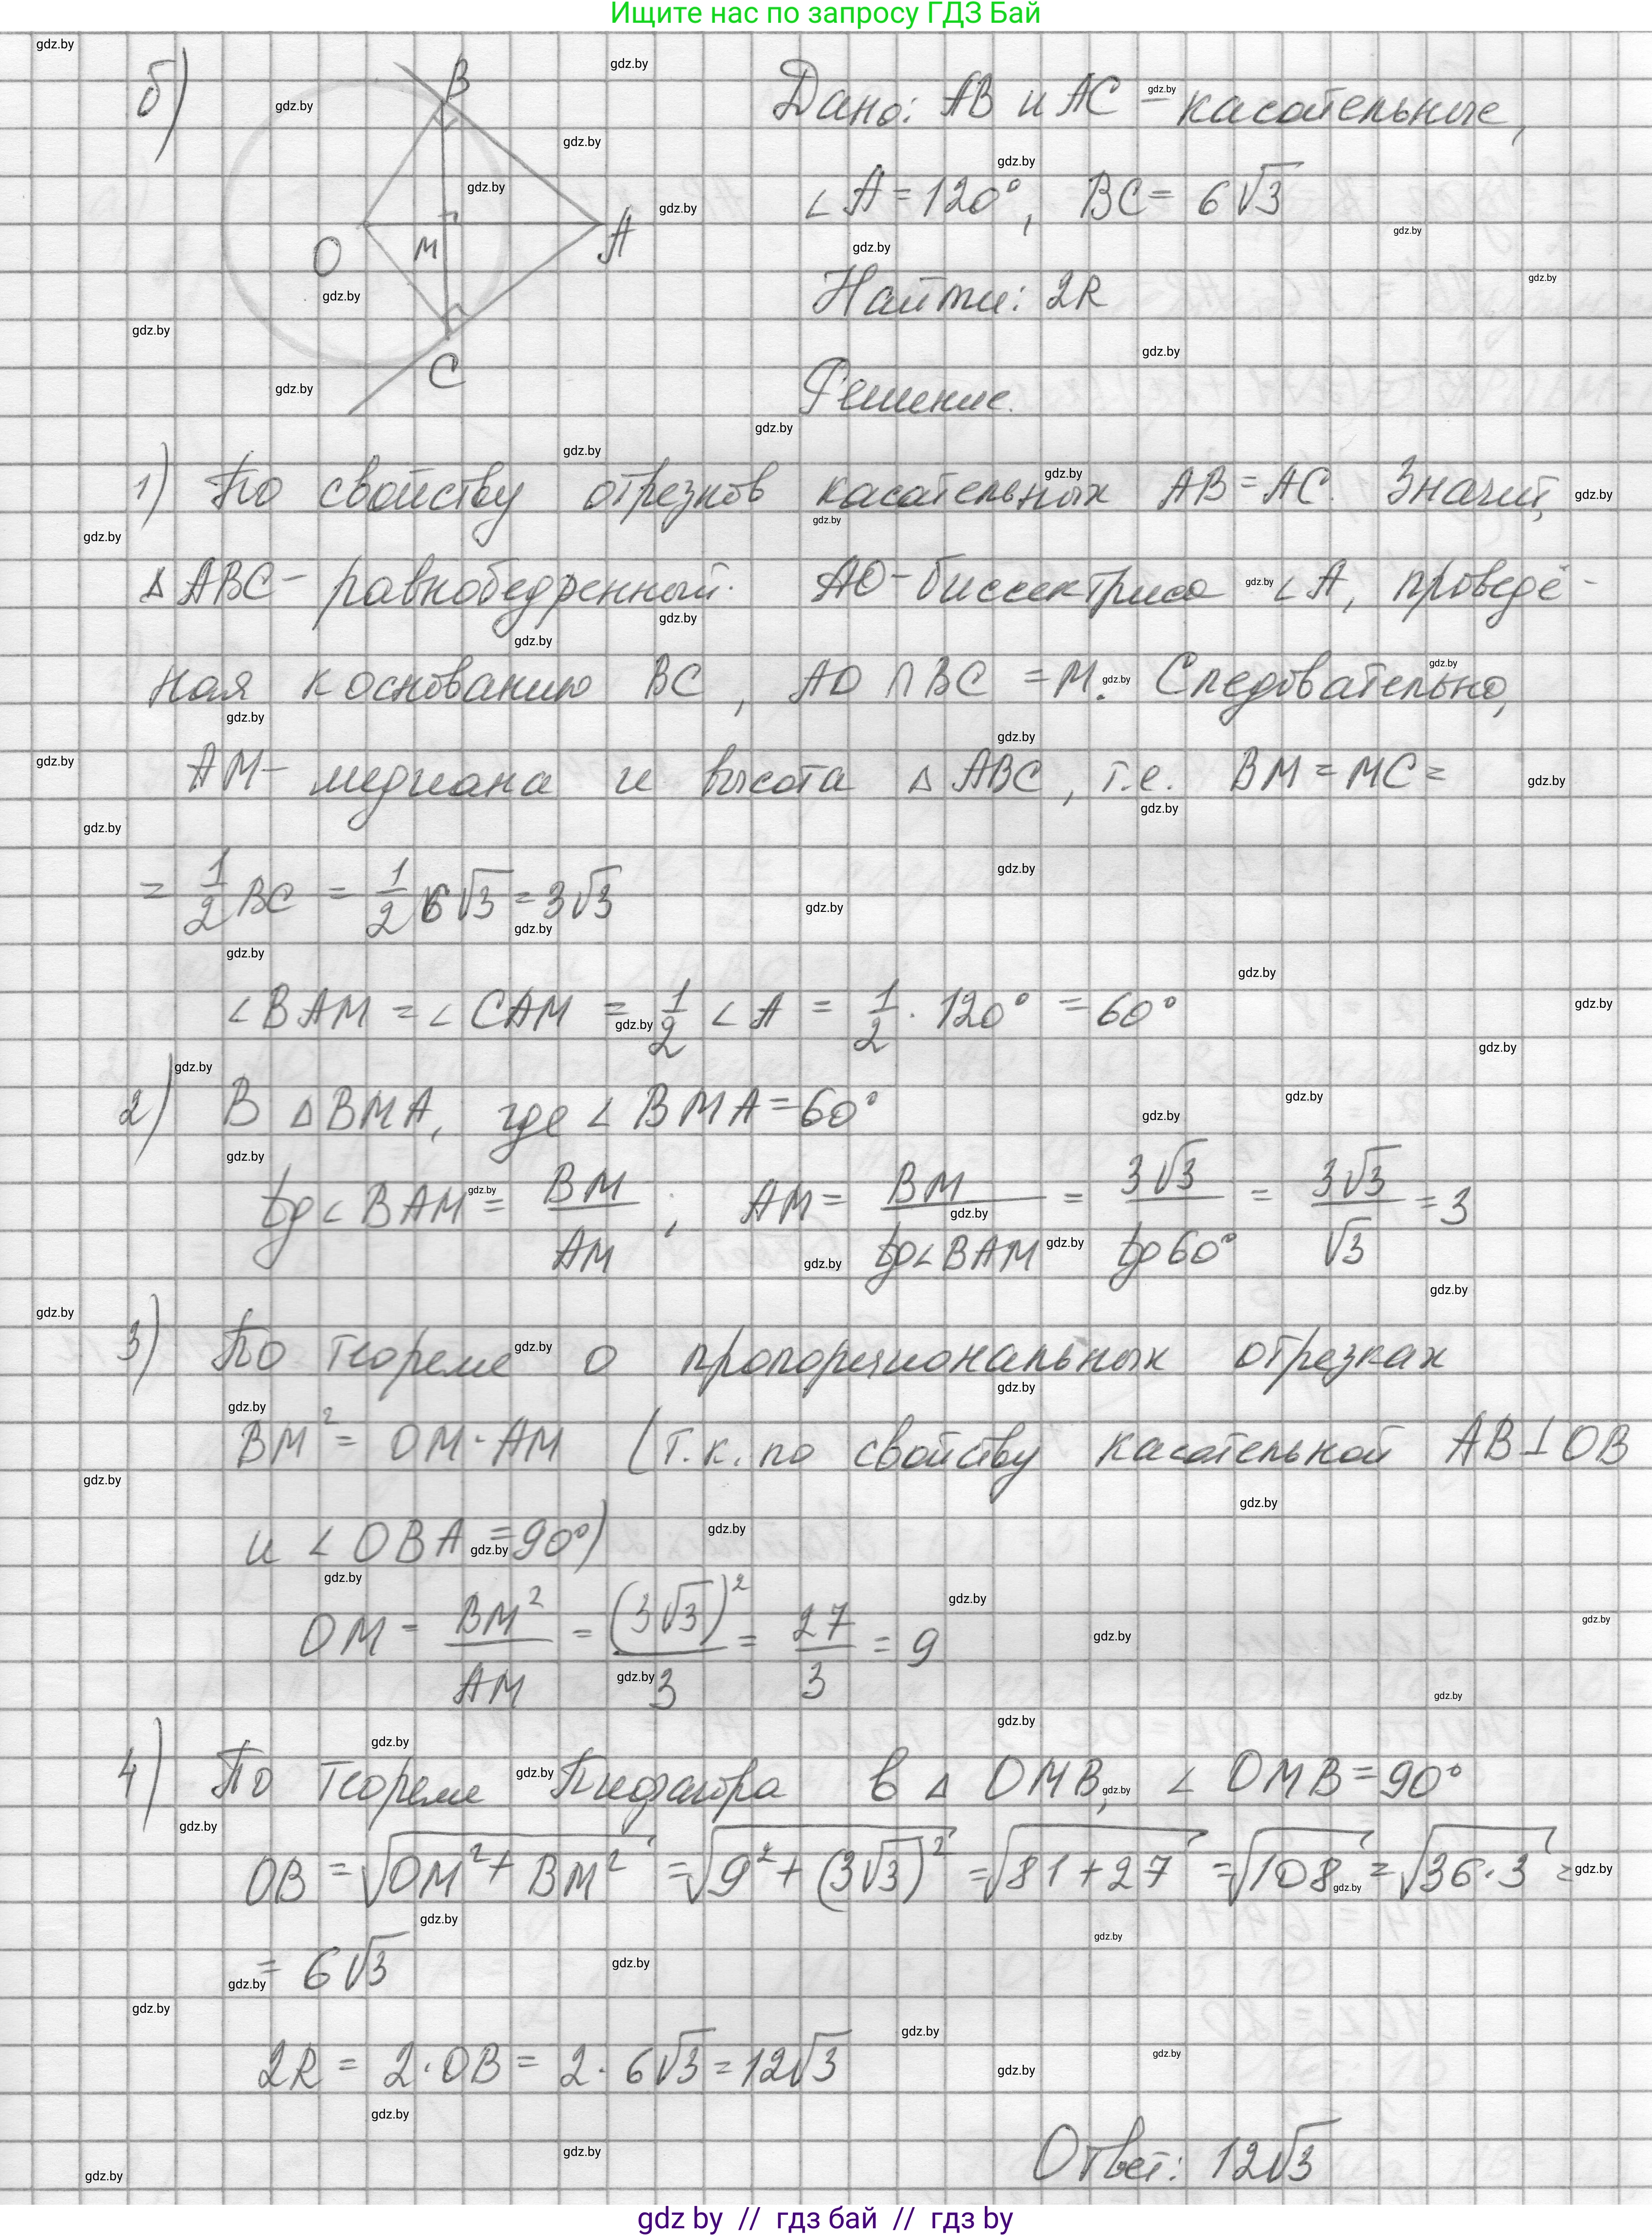 Ищите нас по запросу ГДЗ Бай
б)
B
O
M
A
C
Дано: AB и AC – касательные,
∠A = 120°, BC = 6√3
Найти: 2R
Решение.
1) По свойству отрезков касательных AB = AC. Значит,
△ABC – равнобедренный. AO – биссектриса ∠A, проведё-
ная к основанию BC, AO ∩ BC = M. Следовательно,
AM – медиана и высота △ABC, т.е. BM = MC =
= 1/2 BC = 1/2 6√3 = 3√3
∠BAM = ∠CAM = 1/2 ∠A = 1/2 · 120° = 60°
2) В △BMA, где ∠BMA = 60°
tg∠BAM = BM/AM ; AM = BM/tg∠BAM = 3√3/tg60° = 3√3/√3 = 3
3) По теореме о пропорциональных отрезках
BM² = OM · AM (т.к. по свойству касательной AB ⊥ OB
и ∠OBA = 90°)
OM = BM²/AM = (3√3)²/3 = 27/3 = 9
4) По теореме Пифагора в △OMB, ∠OMB = 90°
OB = √(OM² + BM²) = √(9² + (3√3)²) = √(81 + 27) = √108 = √(36 · 3) =
= 6√3
2R = 2 · OB = 2 · 6√3 = 12√3
Ответ: 12√3
gdz by // гдз бай // гдз by